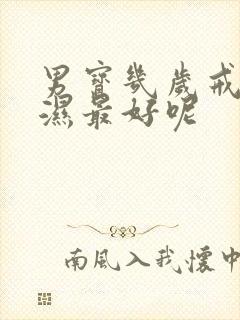 男寶幾歲戒
濕最好呢
南風入我懷中